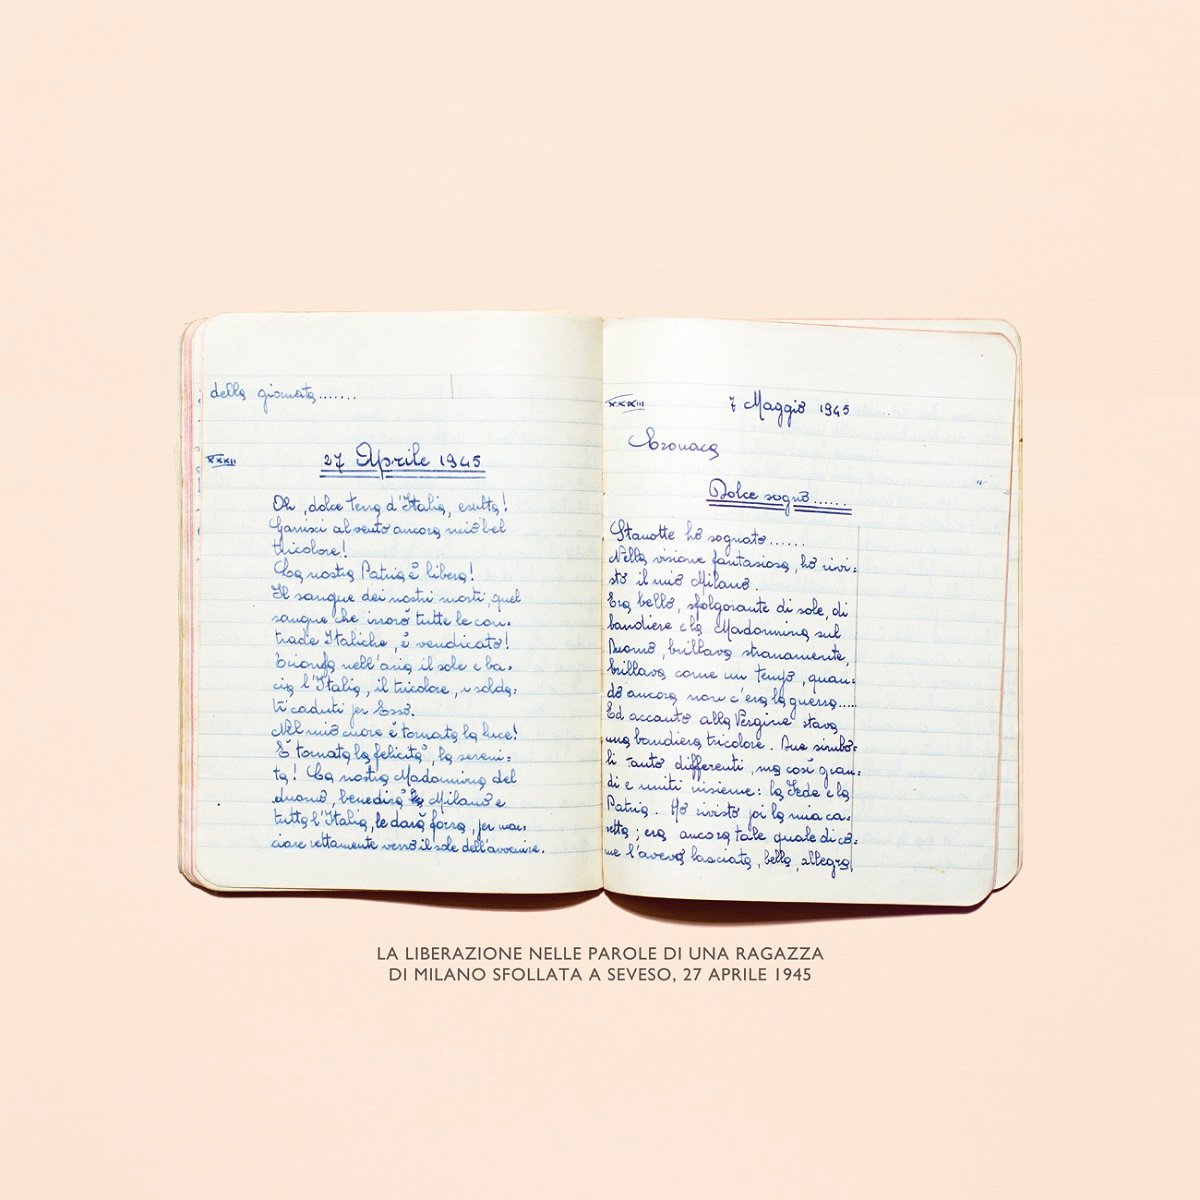 della giornata.......
XXXII
27 Aprile 1945
Oh, dolce terra d'Italia, esulta!
Garrisci al vento ancora mio bel
tricolore!
La nostra Patria è libera!
Il sangue dei nostri morti, quel
sangue che irrorò tutte le con-
trade Italiche, è vendicato!
Trionfa nell'aria il sole e ba-
cia l'Italia, il tricolore, i solda-
ti caduti per Esso.
Nel mio cuore è tornata la luce!
È tornata la felicità, la sereni-
tà! La nostra Madonnina del
duomo, benedirà Milano e
tutta l'Italia, le darà forza, per mar-
ciare rettamente verso il sole dell'avvenire.
XXXIII
7 Maggio 1945
Cronaca
Dolce sogno......
Stanotte ho sognato.......
Nella visione fantasiosa, ho rivi-
sto il mio Milano.
Era bello, sfolgorante di sole, di
bandiere e la Madonnina sul
Duomo, brillava stranamente,
brillava come un tempo, quan-
do ancora non c'era la guerra.....
Ed accanto alla Vergine stava
una bandiera tricolore. Due simbo-
li tanto differenti, ma così gran-
di e uniti insieme: la Fede e la
Patria. Ho rivisto poi la mia ca-
setta; era ancora tale quale di co-
me l'avevo lasciata, bella, allegra,
LA LIBERAZIONE NELLE PAROLE DI UNA RAGAZZA
DI MILANO SFOLLATA A SEVESO, 27 APRILE 1945